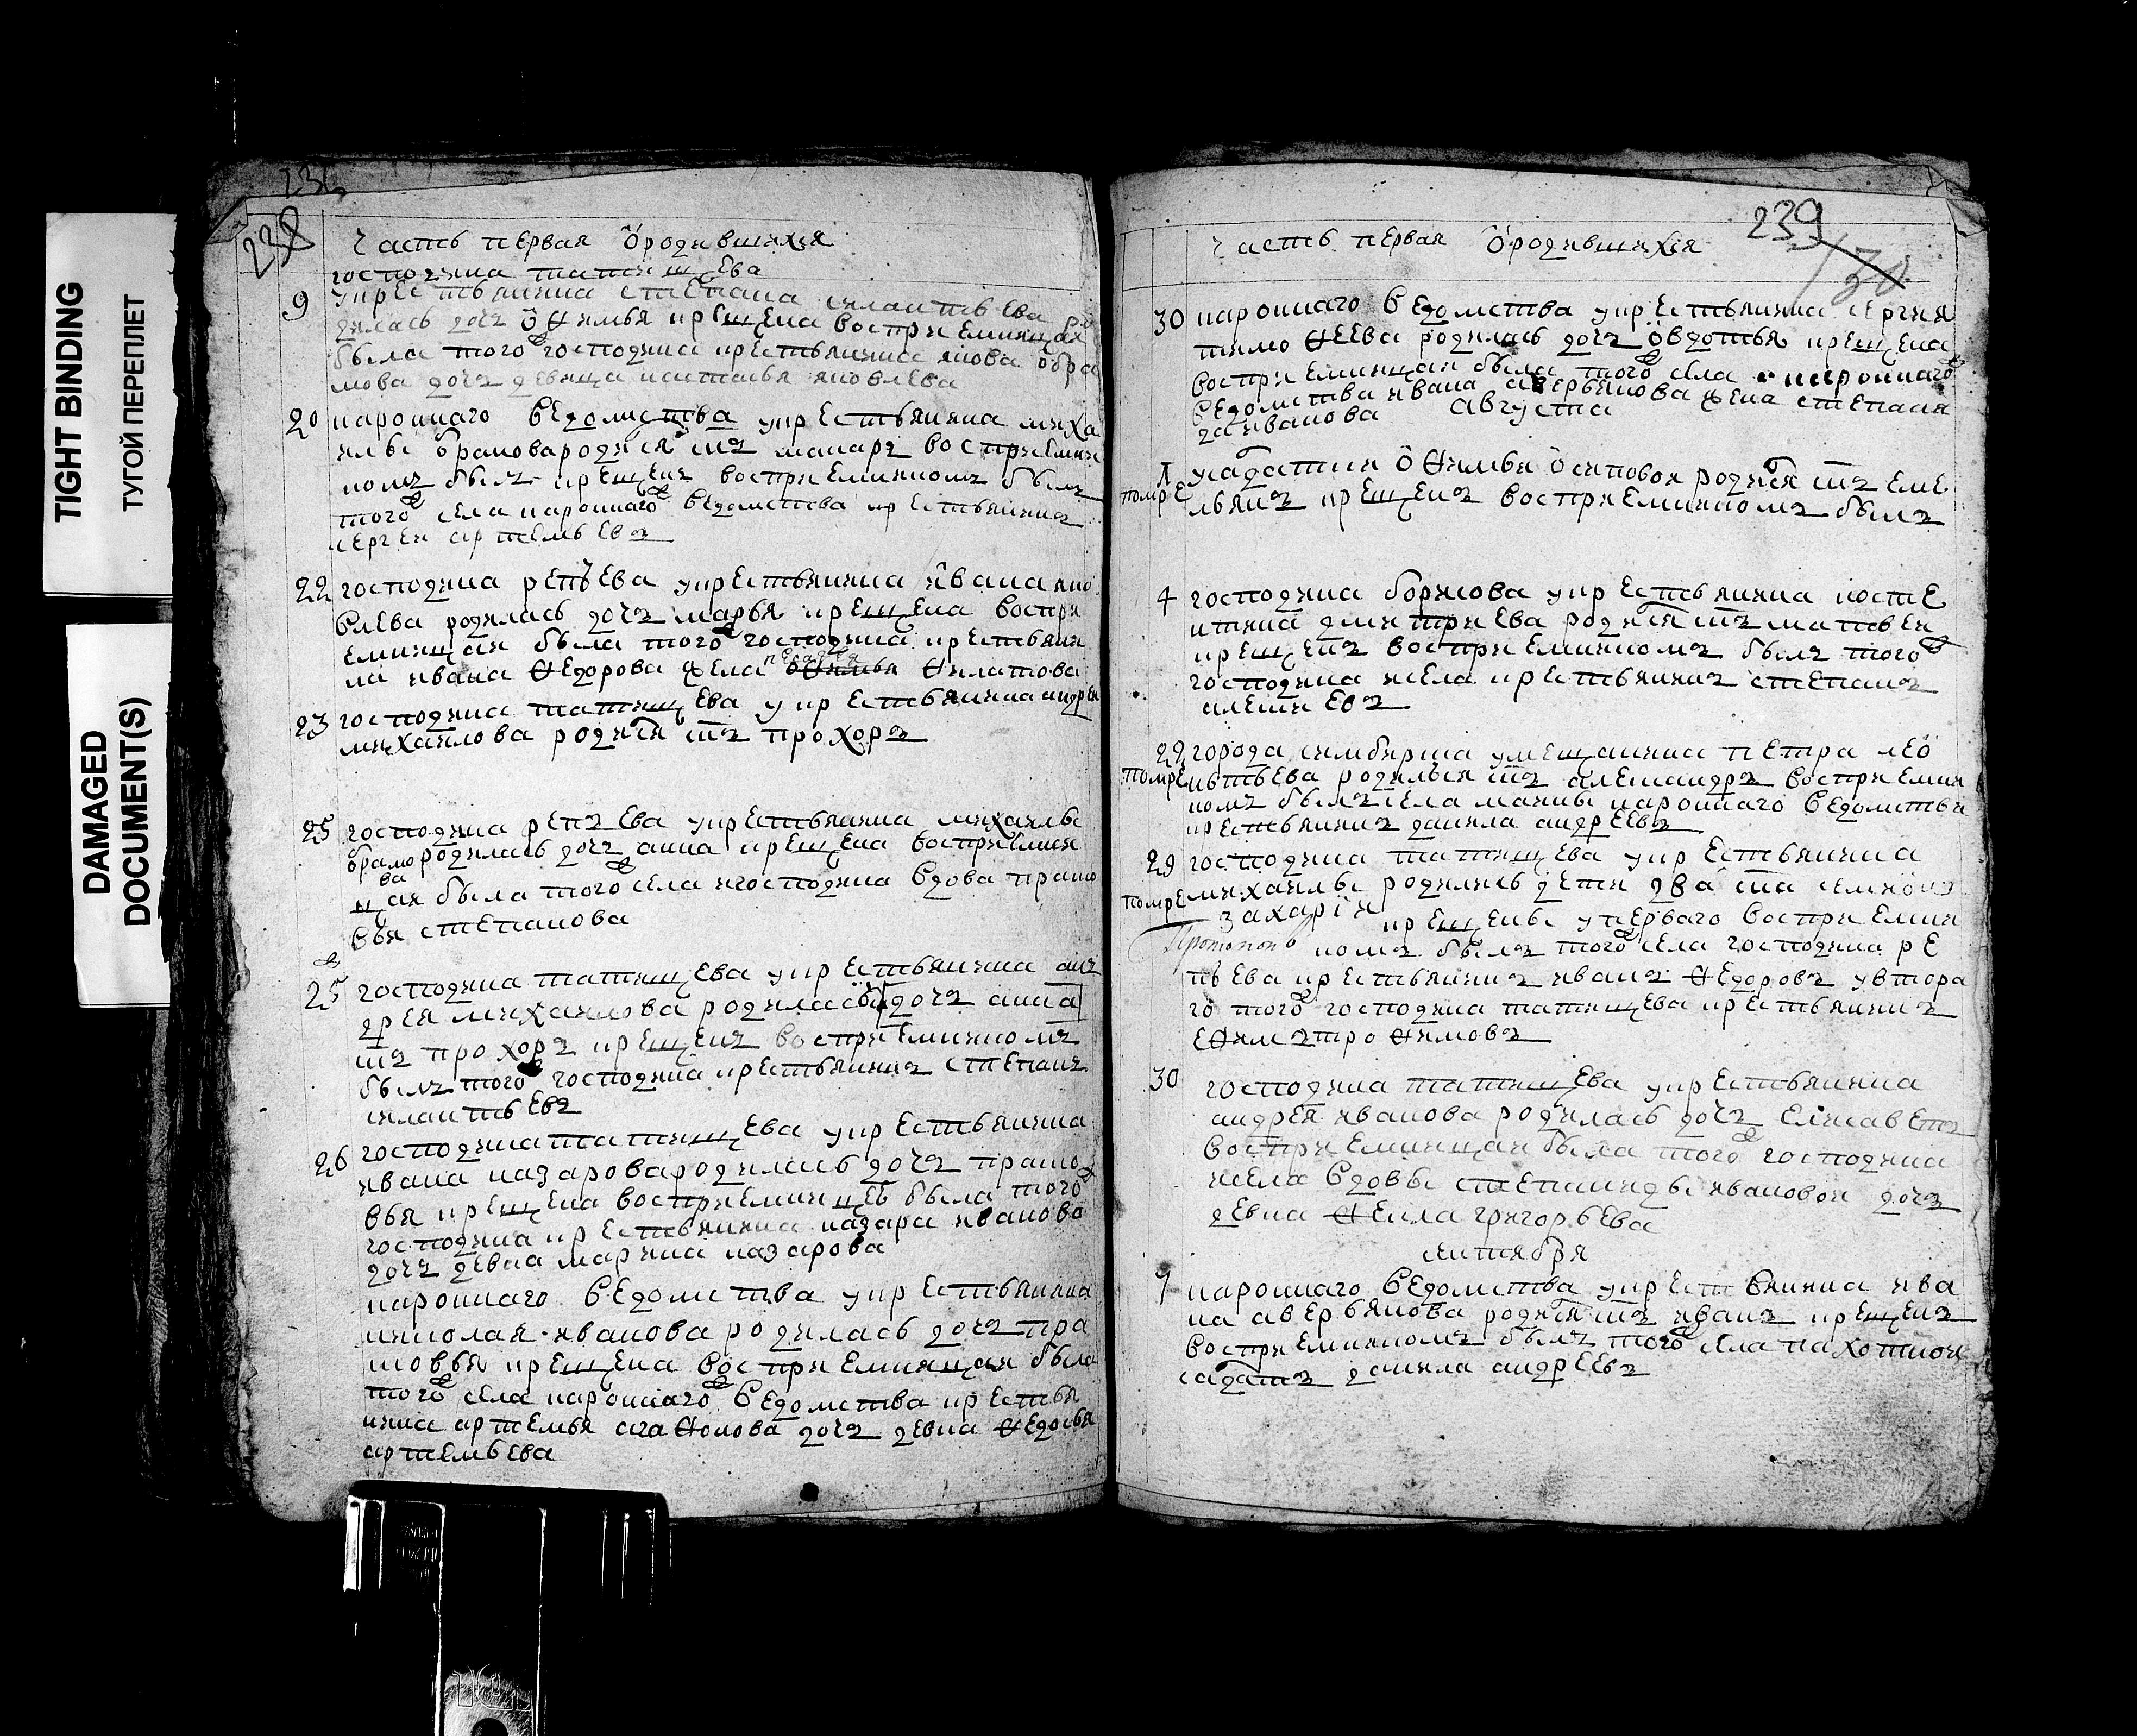 TIGHT BINDING
ТУГОЙ ПЕРЕПЛЕТ
DAMAGED
DOCUMENT(S)
236
238
часть первая о родившихся
господина татищева
9 у крестьянина степана силантьева ро
дилась дочь офимья крещена восприемницая
была того ж господина крестьянина якова обра
мова дочь девица наталья яковлева
20 коронного ведомства у крестьянина миха
илы обрамова родися снъ макаръ восприемни
комъ былъ крещенъ восприемникомъ былъ
того ж села коронного ведомства крестьянинъ
сергеи артемьевъ
22 господина репьева у крестьянина ивана яко
влева родилась дочь марья крещена воспри
емницаи была того ж господина крестьяни
на ивана федорова жена пелагея офимья филатова
23 господина татищева у крестьянина андрея
михаилова родися снъ прохоръ
25 господина репьева у крестьянина михаилы
обрамова родилась дочь анна крещена восприемни
цаи была того ж села и господина вдова праско
вья степанова
25 господина татищева у крестьянина ан
дрея михаилова родилась дочь анна
снъ прохоръ крещенъ восприемникомъ
былъ того ж господина крестьянинъ степанъ
силантьевъ
26 господина татищева у крестьянина
ивана назарова родилась дочь праско
вья крещена восприемницеи была того ж
господина крестьянина назара иванова
дочь девка марина назарова
коронного ведомства у крестьянина
николая иванова родилась дочь пра
сковья крещена восприемницаи была
того ж села коронного ведомства крестья
нина артемья агафонова дочь девка федосья
артемьева
239
130
часть первая о родившихся
30 коронного ведомства у крестьянина сергия
тимофеева родилась дочь овдотья крещена
восприемницаи была того ж села коронного
ведомства ивана аверьянова жена степани
да иванова августа
1 у солдатки офимьи осиповои родися снъ еме
помре льянъ крещенъ восприемникомъ былъ
4 господина борисова у крестьянина косте
нтина дмитриева родися снъ матвеи
крещенъ восприемникомъ былъ того ж
господина и села крестьянинъ степанъ
алексеевъ
22 города симбирска у мещанина петра лео
помре нтьева родилься снъ александръ восприемни
комъ былъ села манны коронного ведомства
крестьянинъ данила андреевъ
29 господина татищева у крестьянина
помре михаилы родились дети два сна семионъ
захарiи крещены у перваго восприемни
Протопопъ комъ былъ того ж села господина ре
пьева крестьянинъ иванъ федоровъ у втора
го того ж господина татищева крестьянинъ
ефимъ трофимовъ
30 господина татищева у крестьянина
андрея иванова родилась дочь елисаветъ
восприемницаи была того ж господина
и села вдовы степаниды ивановои дочь
девка фекла григорьева
сентября
7 коронного ведомства у крестьянина ива
на аверьянова родися снъ иванъ крещенъ
восприемникомъ былъ того ж села пахотнои
салдатъ данила андреевъ